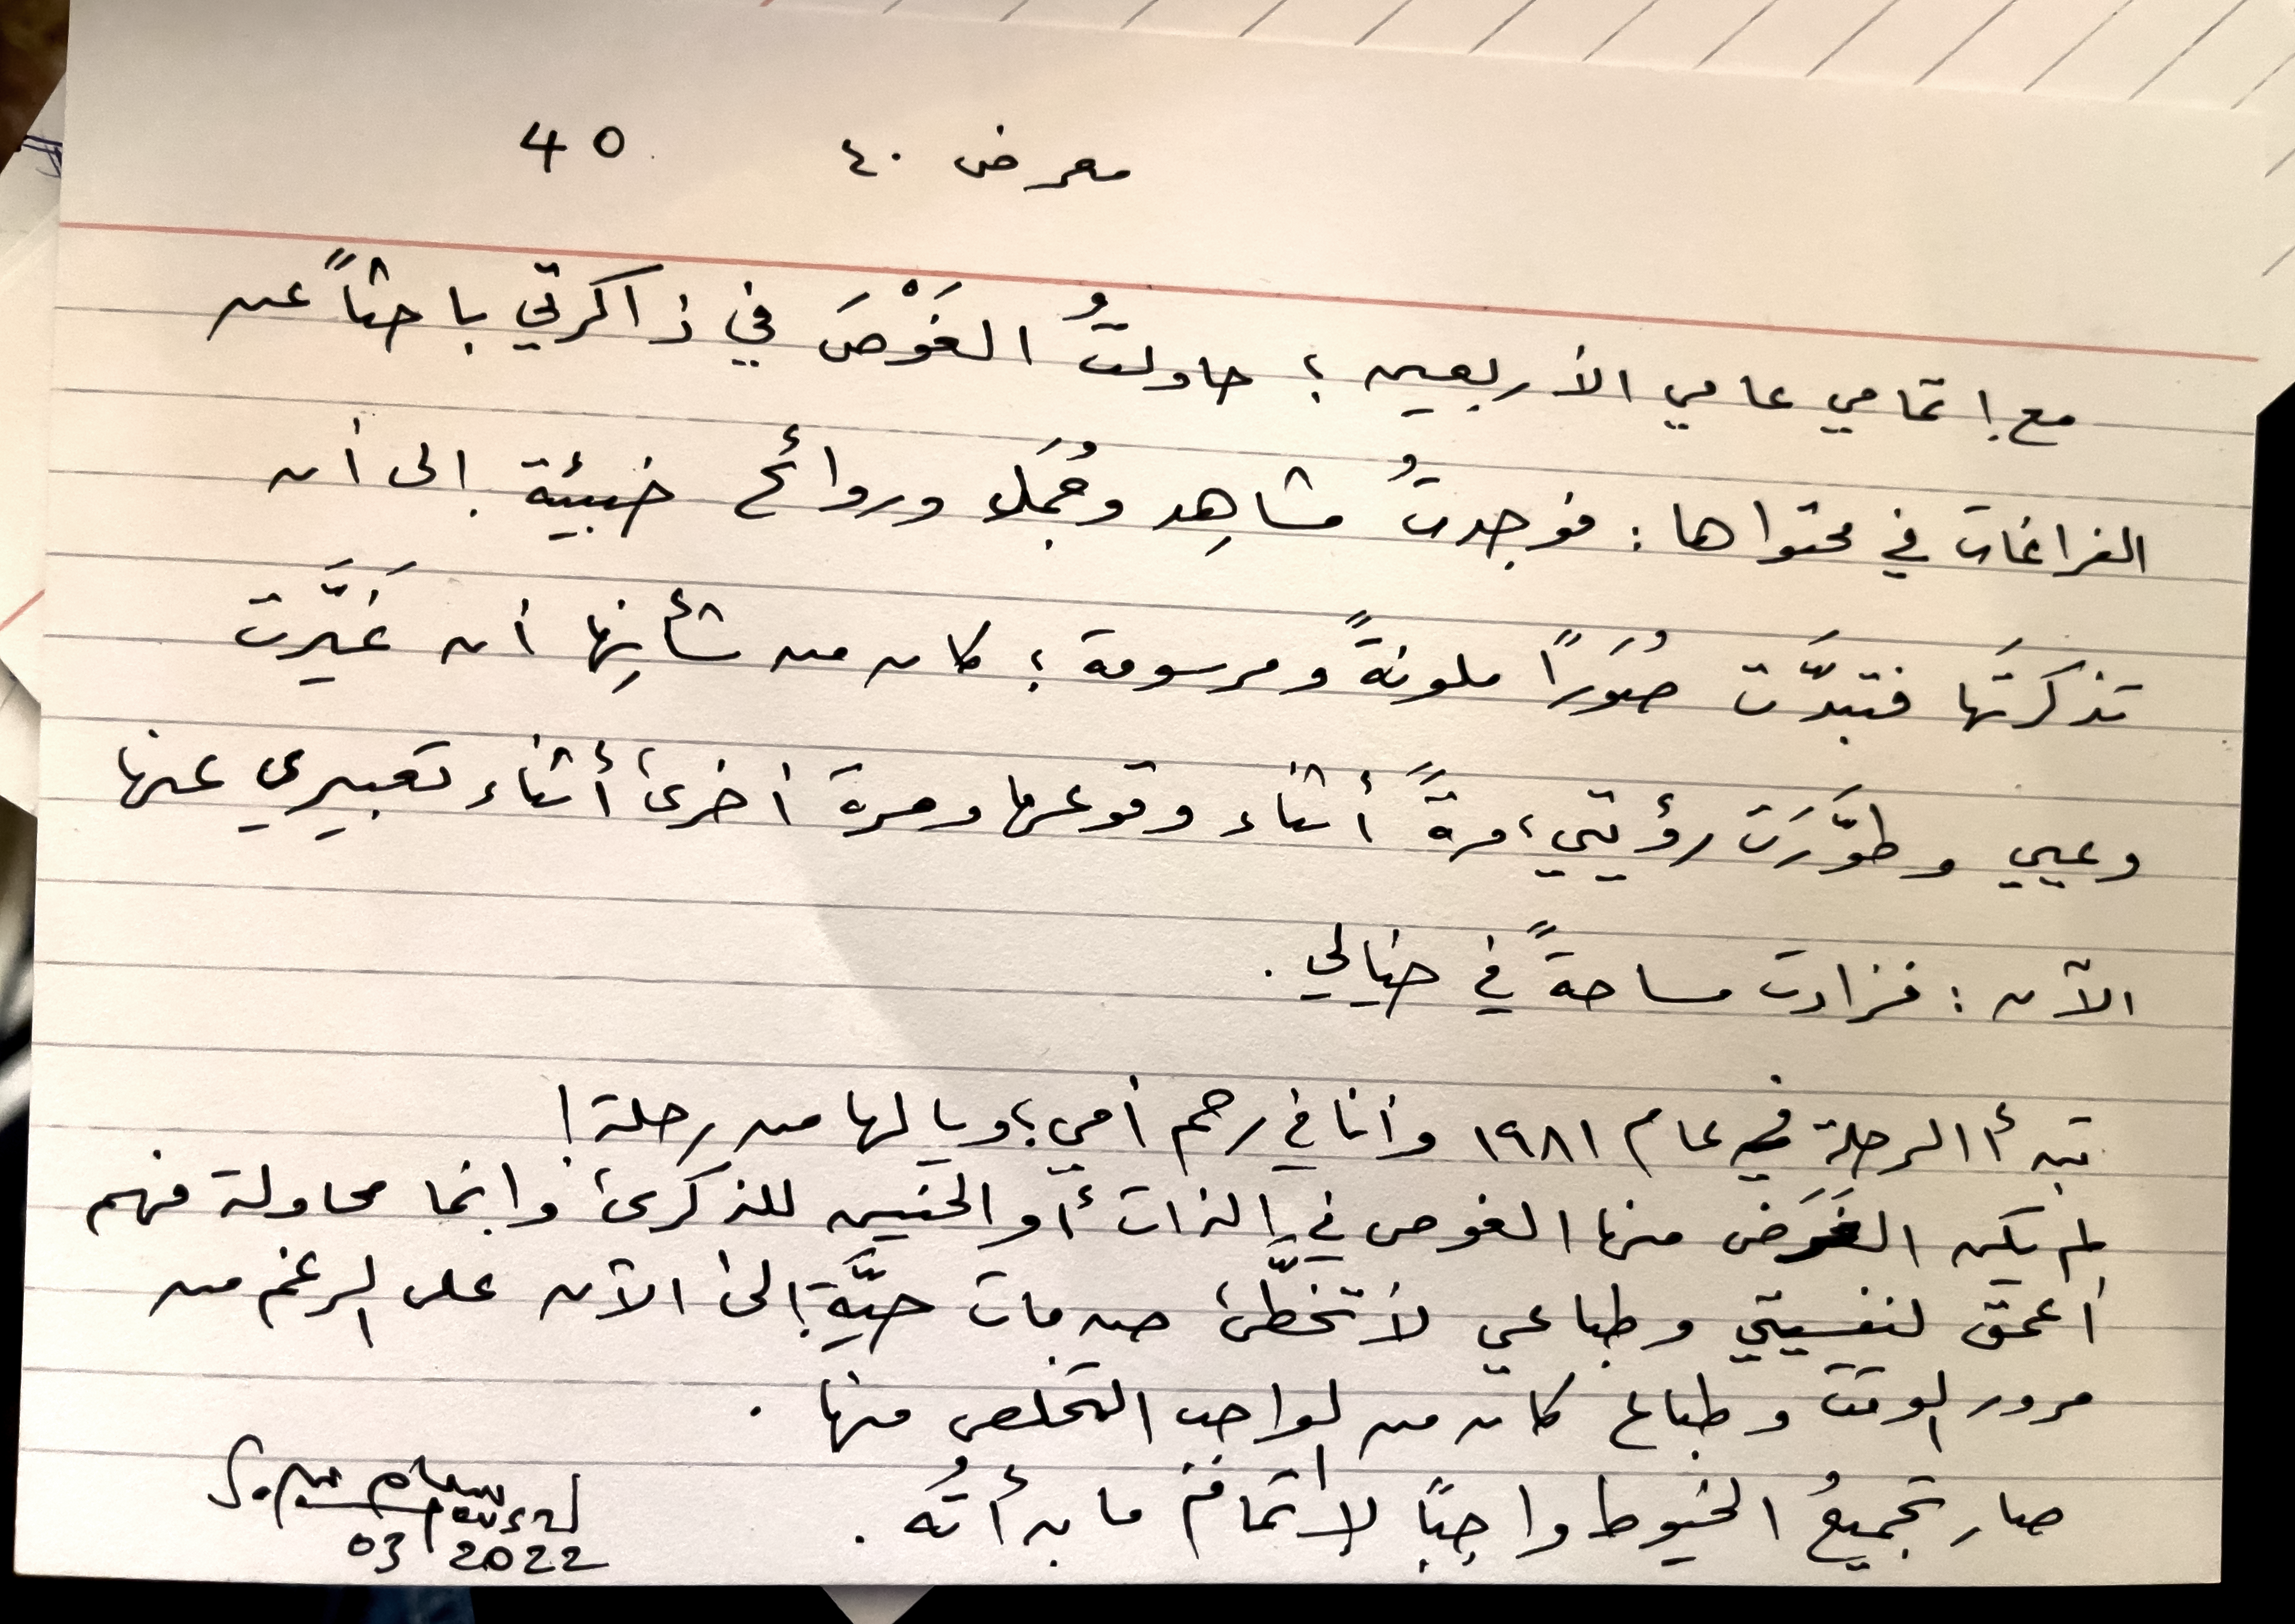 معرض ٤٠ 40
مع إتمامي عامي الأربعين ؛ حاولتُ الغَوْصَ في ذاكرتي باحثاً عن
الفراغات في محتواها : فوجدتُ مشاهِد وجُمَلا وروائح خبيئة إلى أن
تذكرتَها فتبدَّت صُوَرًا ملونةً ومرسومة ؛ كان من شأنِها أن غَيَّرت
وعيي وطوَّرَت رؤيتي، مرةً أثناء وقوعها ومرة أخرى أثناء تعبيري عنها
الآن : فزادت مساحةً في خيالي .
تبدأ الرحلة في عام ١٩٨١ وأنا في رحم أمي؛ ويا لها من رحلة!
لم يكن الغَرَض منها الغوص في الذات أو الحنين للذكرى وإنما محاولة فهم
أعمق لنفسيتي وطباعي لأتخطّى صدمات حيَّة إلى الآن على الرغم من
مرور الوقت وطباع كان من الواجب التخلص منها .
صار تجميعُ الخيوط واجبًا لإتمام ما بدأتُه .
03 2022